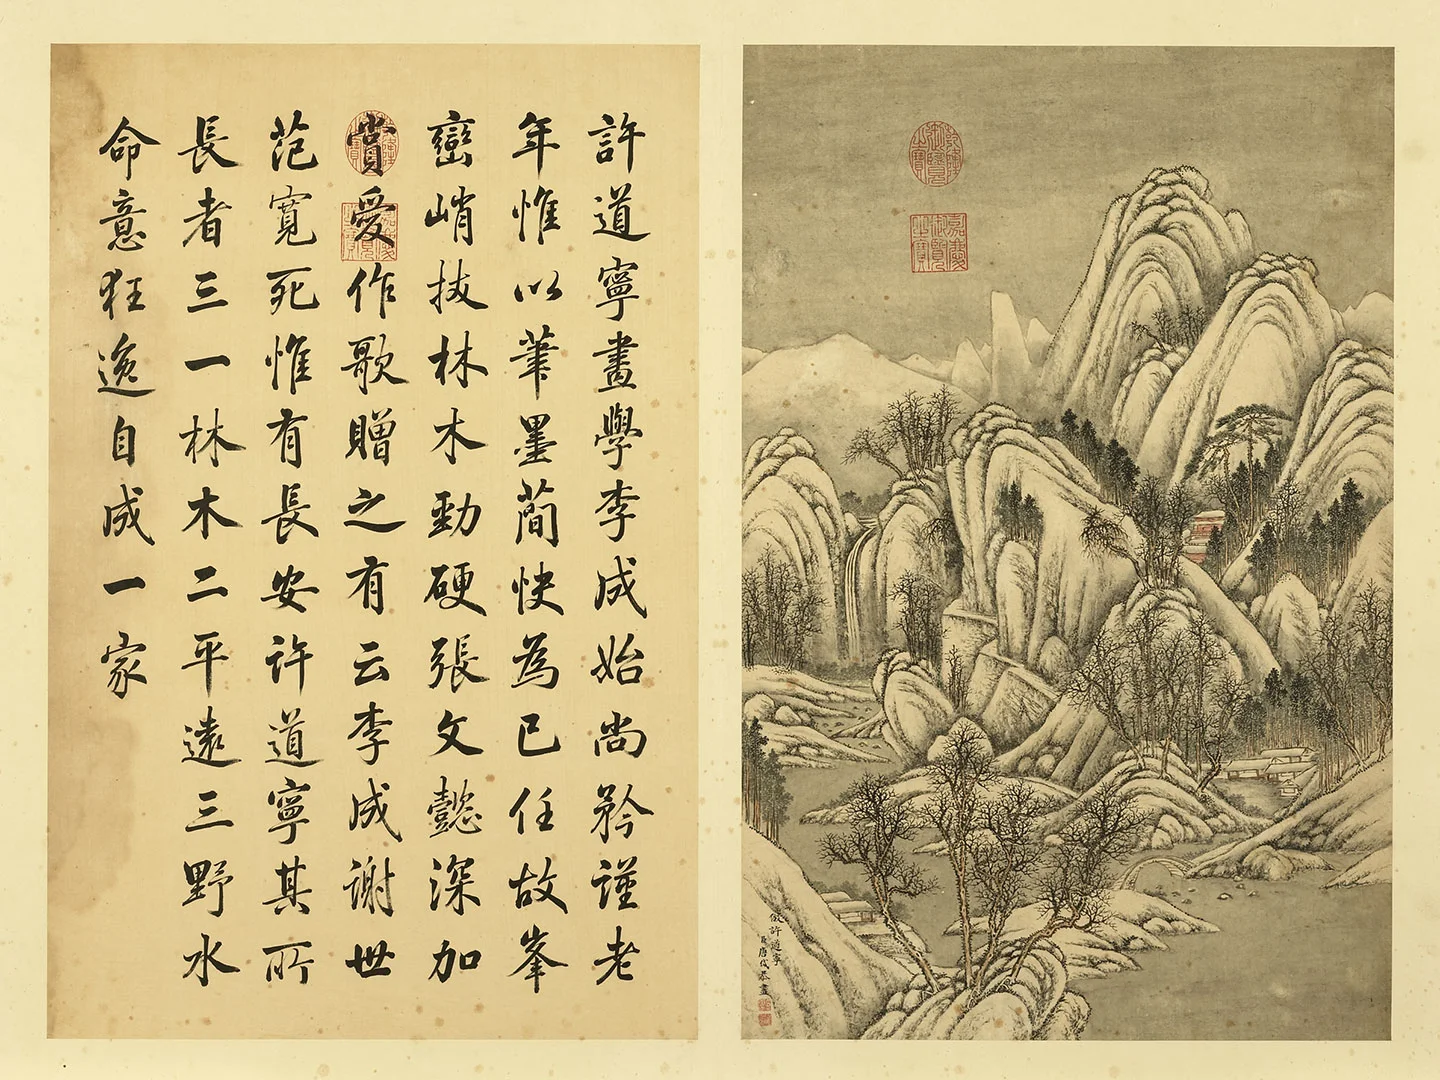 許道寧畫學李成始尚矜謹老
年惟以筆墨簡快為已任故峯
巒峭拔林木勁硬張文懿深加
賞愛作歌贈之有云李成謝世
范寬死惟有長安許道寧其所
長者三一林木二平遠三野水
命意狂逸自成一家
乾隆御覽之寶
嘉慶御覽之寶
倣許道寧
臣唐岱恭畫